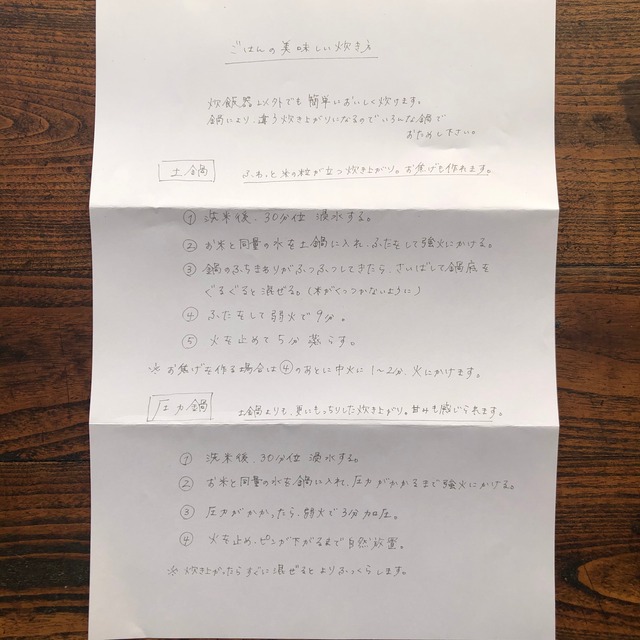 ごはんの美味しい炊き方
炊飯器以外でも簡単においしく炊けます。
鍋により違う炊き上がりになるのでいろんな鍋で
おためし下さい。
土鍋
ふわっと米の粒が立つ炊き上がり。お焦げも作れます。
① 洗米後、30分位 浸水する。
② お米と同量の水を土鍋に入れ、ふたをして強火にかける。
③ 鍋のふちまわりがふつふつしてきたら、さいばしで鍋底を
ぐるぐると混ぜる。(米がくっつかないように)
④ ふたをして弱火で9分。
⑤ 火を止めて5分 蒸らす。
※ お焦げを作る場合は④のあとに中火に1〜2分、火にかけます。
圧力鍋
土鍋よりも、更にもっちりした炊き上がり。甘みも感じられます。
① 洗米後、30分位 浸水する。
② お米と同量の水を鍋に入れ、圧力がかかるまで強火にかける。
③ 圧力がかかったら、弱火で3分加圧。
④ 火を止め、ピンが下がるまで自然放置。
※ 炊き上がったらすぐに混ぜるとよりふっくらします。